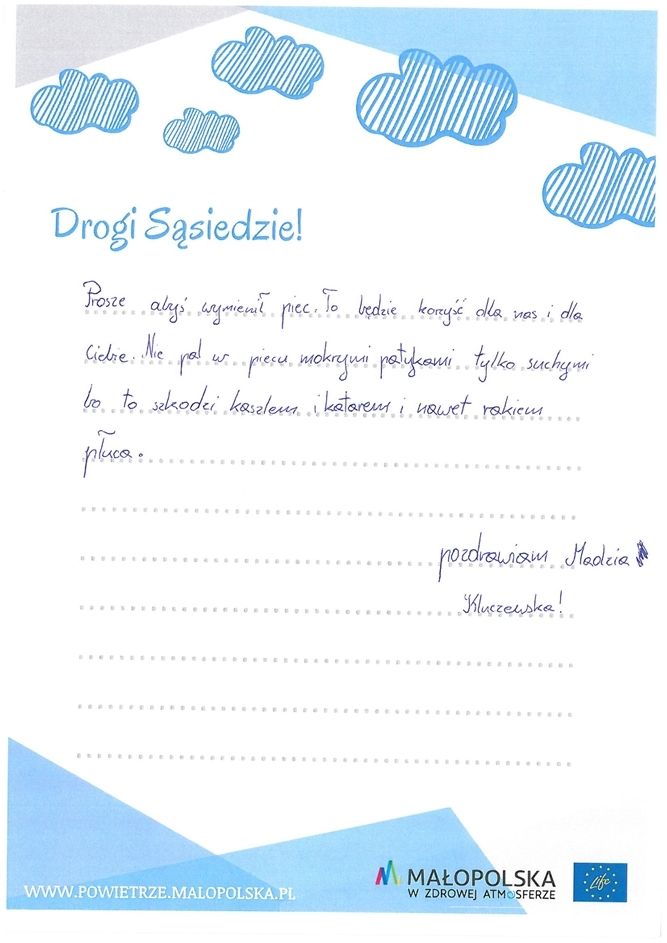 Drogi Sąsiedzie!
Prosze abyś wymienił piec. To będzie koryść dla nas i dla
Ciebie. Nie pal w piecu mokrymi patykami tylko suchymi
bo to szkodzi kaszlem i katarem i nawet rakiem
płuca.
pozdrawiam Madzia
Kluczewska!
WWW.POWIETRZE.MALOPOLSKA.PL
MAŁOPOLSKA
W ZDROWEJ ATMOSFERZE
Life